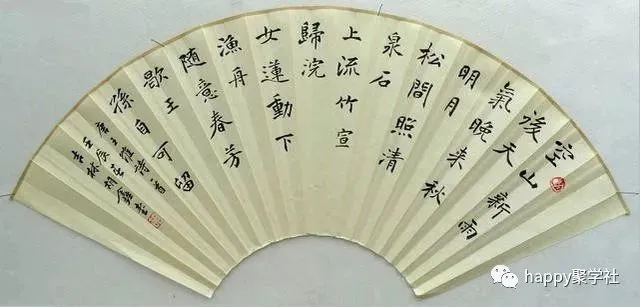 空山新雨
後天
氣晚来秋
明月
松間照清
泉石
上流竹宣
歸浣
女蓮動下
漁舟
随意春芳
歇王
孫自可留
唐王維詩一首
壬辰
吉林
happy聚学社